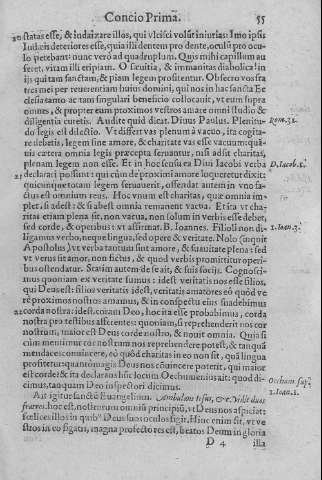 Concio Prima. 55
20 statas esse, & iudaizare illos, qui vlcisci volūt iniurias: Imo ipsis
Iudæis deteriores esse, quia illi dentem pro dente, oculū pro ocu
lo petebant: nunc verò ad quadruplum. Quis mihi capillum au
feret, vitam illi eripiam. O sæuitia, & immanitas diabolica! in
ijs qui tam sanctam, & piam legem profitentur. Obsecro vos fra
tres mei per reuerentiam huius domini, qui nos in hac sancta Ec
clesia tanto ac tam singulari beneficio collocauit, vt eum supra
omnes, & propter eum proximos vestros amare omni studio &
diligentia curetis. Audite quid dicat. Diuus Paulus. Plenitu- Rom. 13.
do legis est dilectio. Vt differt vas plenum à vacuo, ita cogita-
re debetis, legem sine amore, & charitate vas esse vacuum: quā-
uis cætera omnia legis præcepta seruantur, nisi adsit charitas,
plenam legem non esse. Et in hoc sensu ea Diui Iacobi verba D. Iacob. 2.
21 declarari possunt: qui cùm de proximi amore loqueretur dixit:
quicunque totam legem seruauerit, offendat autem in vno fa-
ctus est omnium reus. Hoc vnum est charitas, quæ omnia im-
plet, si adest: & si abest omnia remanent vacua. Et ita vt cha-
ritas etiam plena sit, non vacua, non solum in verbis esse debet,
sed corde, & operibus: vt affirmat. B. Ioannes. Filioli non di- 1. Ioan. 3.
ligamus verbo, neque lingua, sed opere & veritate. Nolo (inquit
Apostolus) vt verba tantum sint amore, & suauitate plena: sed
vt verus sit amor, non fictus, & quod verbis promittitur operi-
bus ostendatur. Statim autem de se ait, & suis socijs. Cognosci-
mus quoniam ex veritate sumus: idest veritatis nos esse filios,
qui Deus est: filios veritatis idest, veritatis amatores eò quòd ve
rè proximos nostros amamus, & in conspectu eius suadebimus
22 corda nostra: idest, coram Deo, hoc ita esse probabimus, corda
nostra pro testibus afferentes: quoniam, si reprehenderit nos cor
nostrum, maior est Deus corde nostro, & nouit omnia. Quia si
cùm mentimur cor nostrum nos reprehendere potest, & tanquā
mendaces: conuincere, eò quòd charitas in eo non sit, quā lingua
profitetur: quantò magis Deus nos cōuincere poterit, qui maior
est corde: & ita declarans hîc locum Oechumenius ait: quod di-
cimus, tanquam Deo inspectori dicimus. Oechum. sup. 1. Ioan. 3.
Ait igitur sanctū Euangelium. Ambulans Iesus, &c. Vidit duos
fratres. hoc est, nostrorum omnis principiū, vt Deus nos aspiciat:
fœlices illos in quibꝰ Deus suos oculos figit. Hinc enim sit, vt ve
stros in eo figatis, magna profectò res est, beatos Deum in gloria
D 4 illa